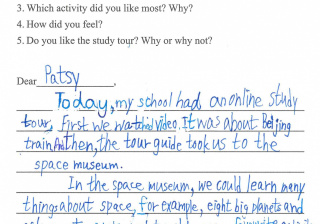 3. Which activity did you like most? Why?
4. How did you feel?
5. Do you like the study tour? Why or why not?
Dear Patsy,
Today, my school had an online study
tour, first we watched video. It was about Beijing
train. then, the tour guide took us to the
space museum.
In the space museum, we could learn many
things about space, for example, eight big planets and